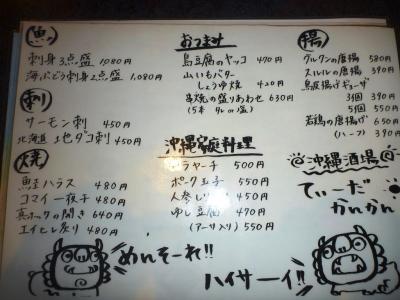 魚
刺身3点盛 1,080円
海ぶどう刺身2点盛 1,080円
刺
サーモン刺 450円
北海道 地ダコ刺 450円
焼
鮭ハラス 480円
コマイ一夜干 480円
真ホッケの開き 640円
エイヒレ炙り 480円
おつまみ
島豆腐のヤッコ 470円
山いもバター
しょうゆ焼 420円
串焼の盛りあわせ 630円
(5本 タレor塩)
沖縄家庭料理
ヒラヤーチ 500円
ポーク玉子 550円
人参しりしり 450円
ゆし豆腐 470円
(アーサ入り) 550円
揚
グルクンの唐揚 580円
スルルの唐揚 390円
島豚揚げギョーザ
3個 390円
5個 550円
若鶏の唐揚げ 650円
(ハーフ) 390円
沖縄酒場
てぃーだ
かんかん
めんそーれ!!
ハイサーイ!!